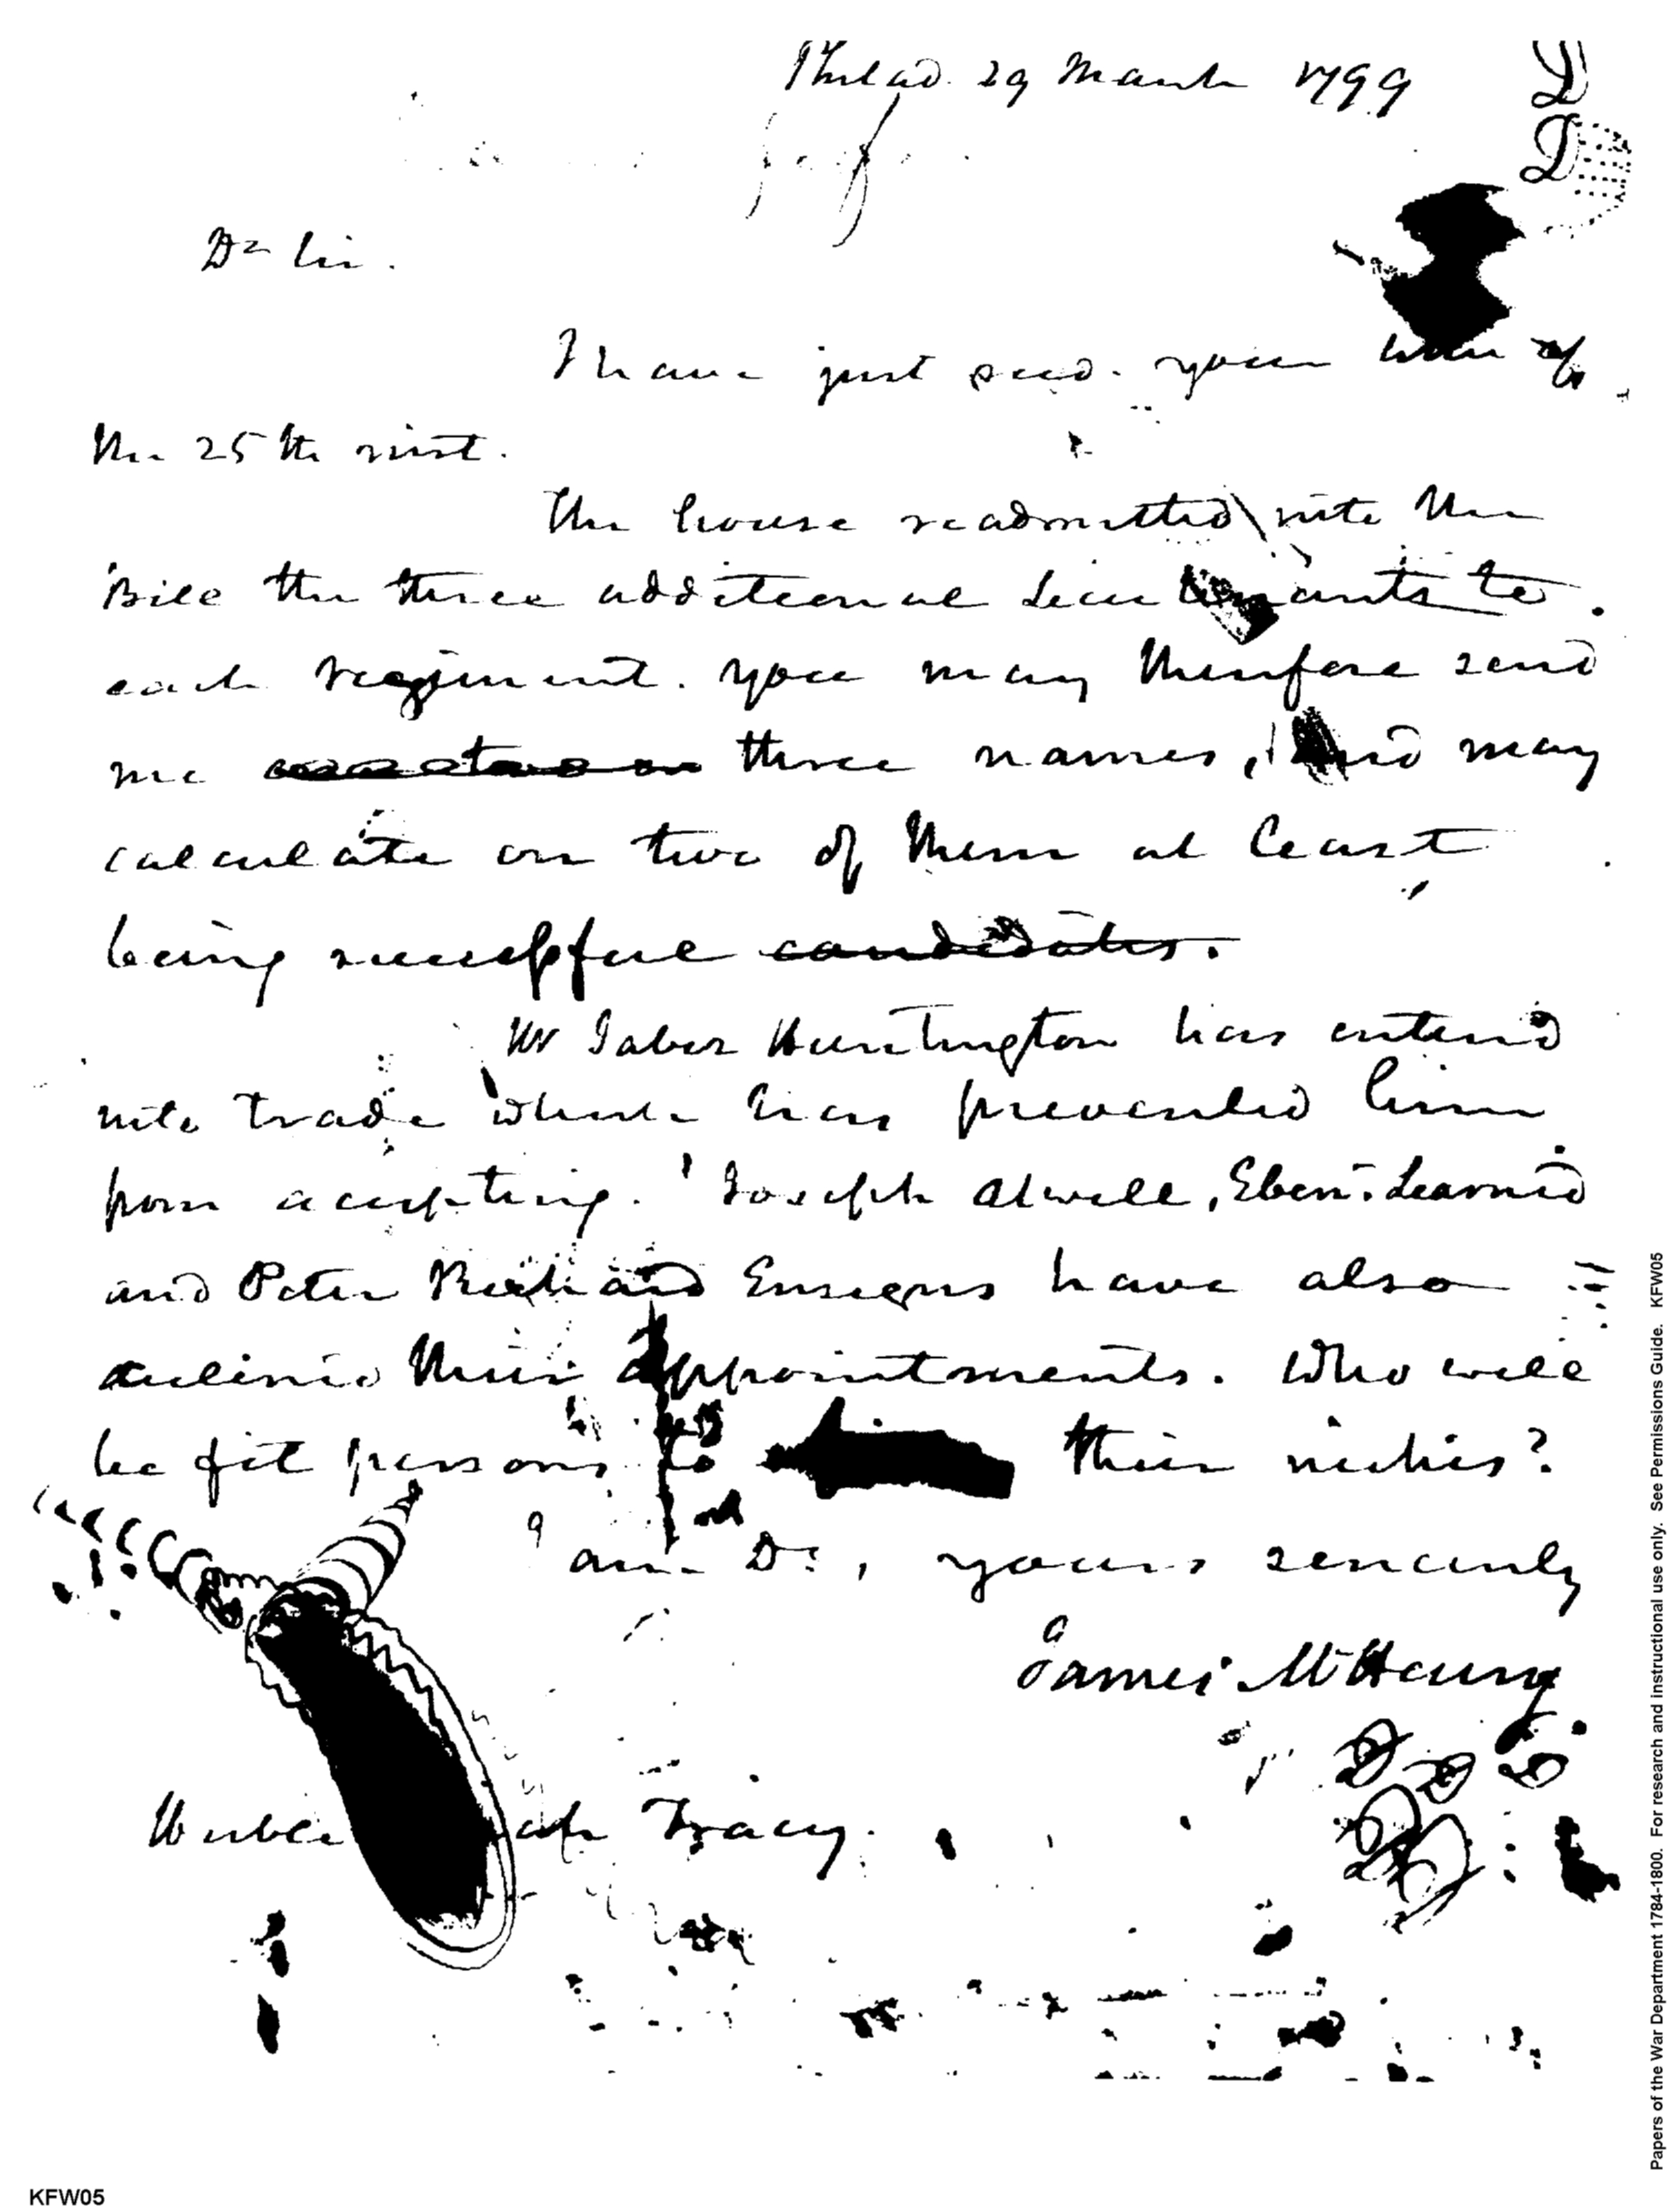 Philad. 29 March 1799
Dr Sir.
I have just recd. your letter of
the 25th inst.
The house readmitted into the
Bill the three additional Lieutenants to
each regiment. you may therefore send
me three names, and may
calculate on two of them at least
being successful candidates.
Mr Jabez Huntington has entered
into trade which has prevented him
from accepting. Joseph Atwell, Eben. Learned
and Peter Richards Ensigns have also
declined their appointments. Who will
be fit persons to their niches?
I am Dr , yours sincerely
James McHenry
Uriah Tracy.
Papers of the War Department 1784-1800. For research and instructional use only. See Permissions Guide. KFW05
KFW05